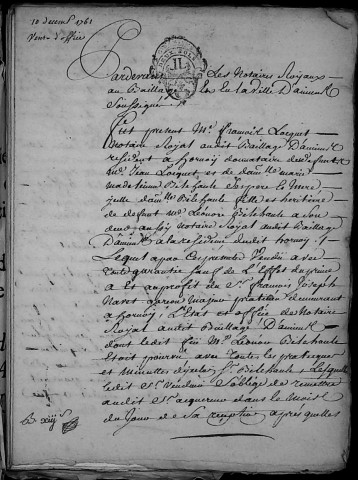 10 decemb 1761
Vente d'office
Pardevant Les Notaires Royaux
au Bailliage La Ville D'amiens
Soussignés
fut present Me. francois Locquet
Notaire Royal audit Bailliage Damiens
resident à hornoy donnataire de deffunt
Me. Jean Locquet et de dam.lle marie
madelaine Bilehaute Ses pere et mere
jcelle dam.lle Bilehaute fille et heritiere
de defunt Me. Leonor Bilehaute a Son
deces Notaire Royal audit Bailliage
Damiens a la residence dudit hornoy
Lequel a par Ces presentes Vendu avec
toute garantie Sauf de
a Et au profit du Sr. francois Joseph
Navet Garcon Majeur praticien demeurant
a hornoy L'Etat et office de Notaire
Royal audit Bailliage D'amiens
dont Ledit feu Me. Leonor Bilehaute
Etoit pourvu avec toutes Les pratiques
et Minuttes dudit Sr. Bilehaute, Lesquelles
Ledit Sr. Vendeur S'oblige de remettre
audit Sr. acquereur dans Le mois
du Jour de Sa reception apres quelles